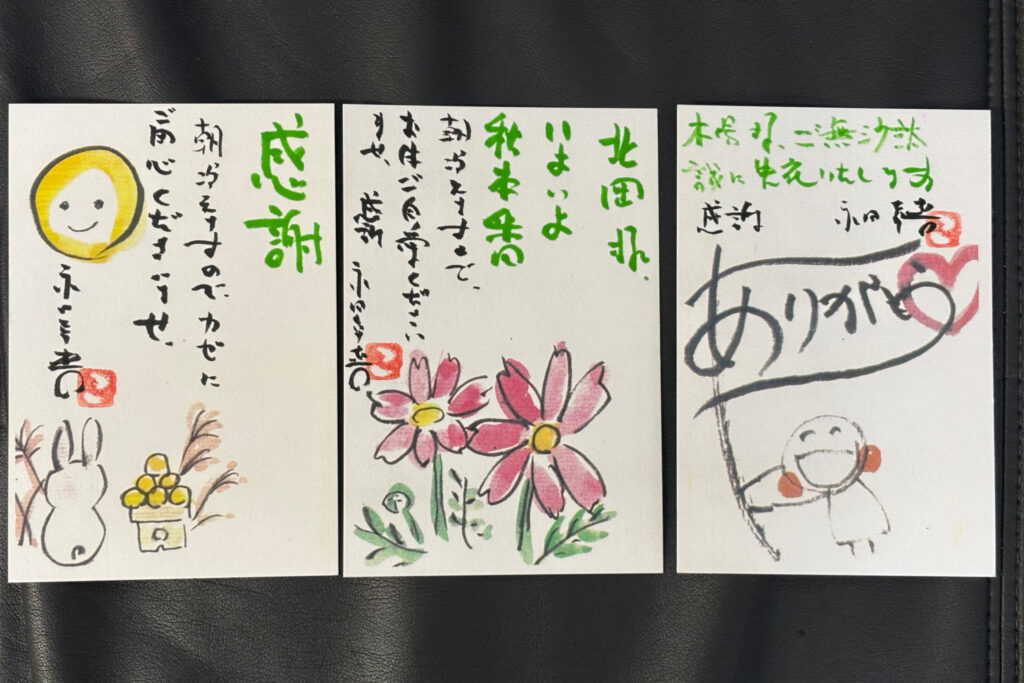 感謝
朝夕冷えますので、カゼに
ご用心くださいませ。
北岡様
いよいよ
秋本番
朝夕冷えますので、
お体ご自愛ください
ませ。 感謝
木場様、ご無沙汰
誠に失礼いたします
感謝
ありがとう